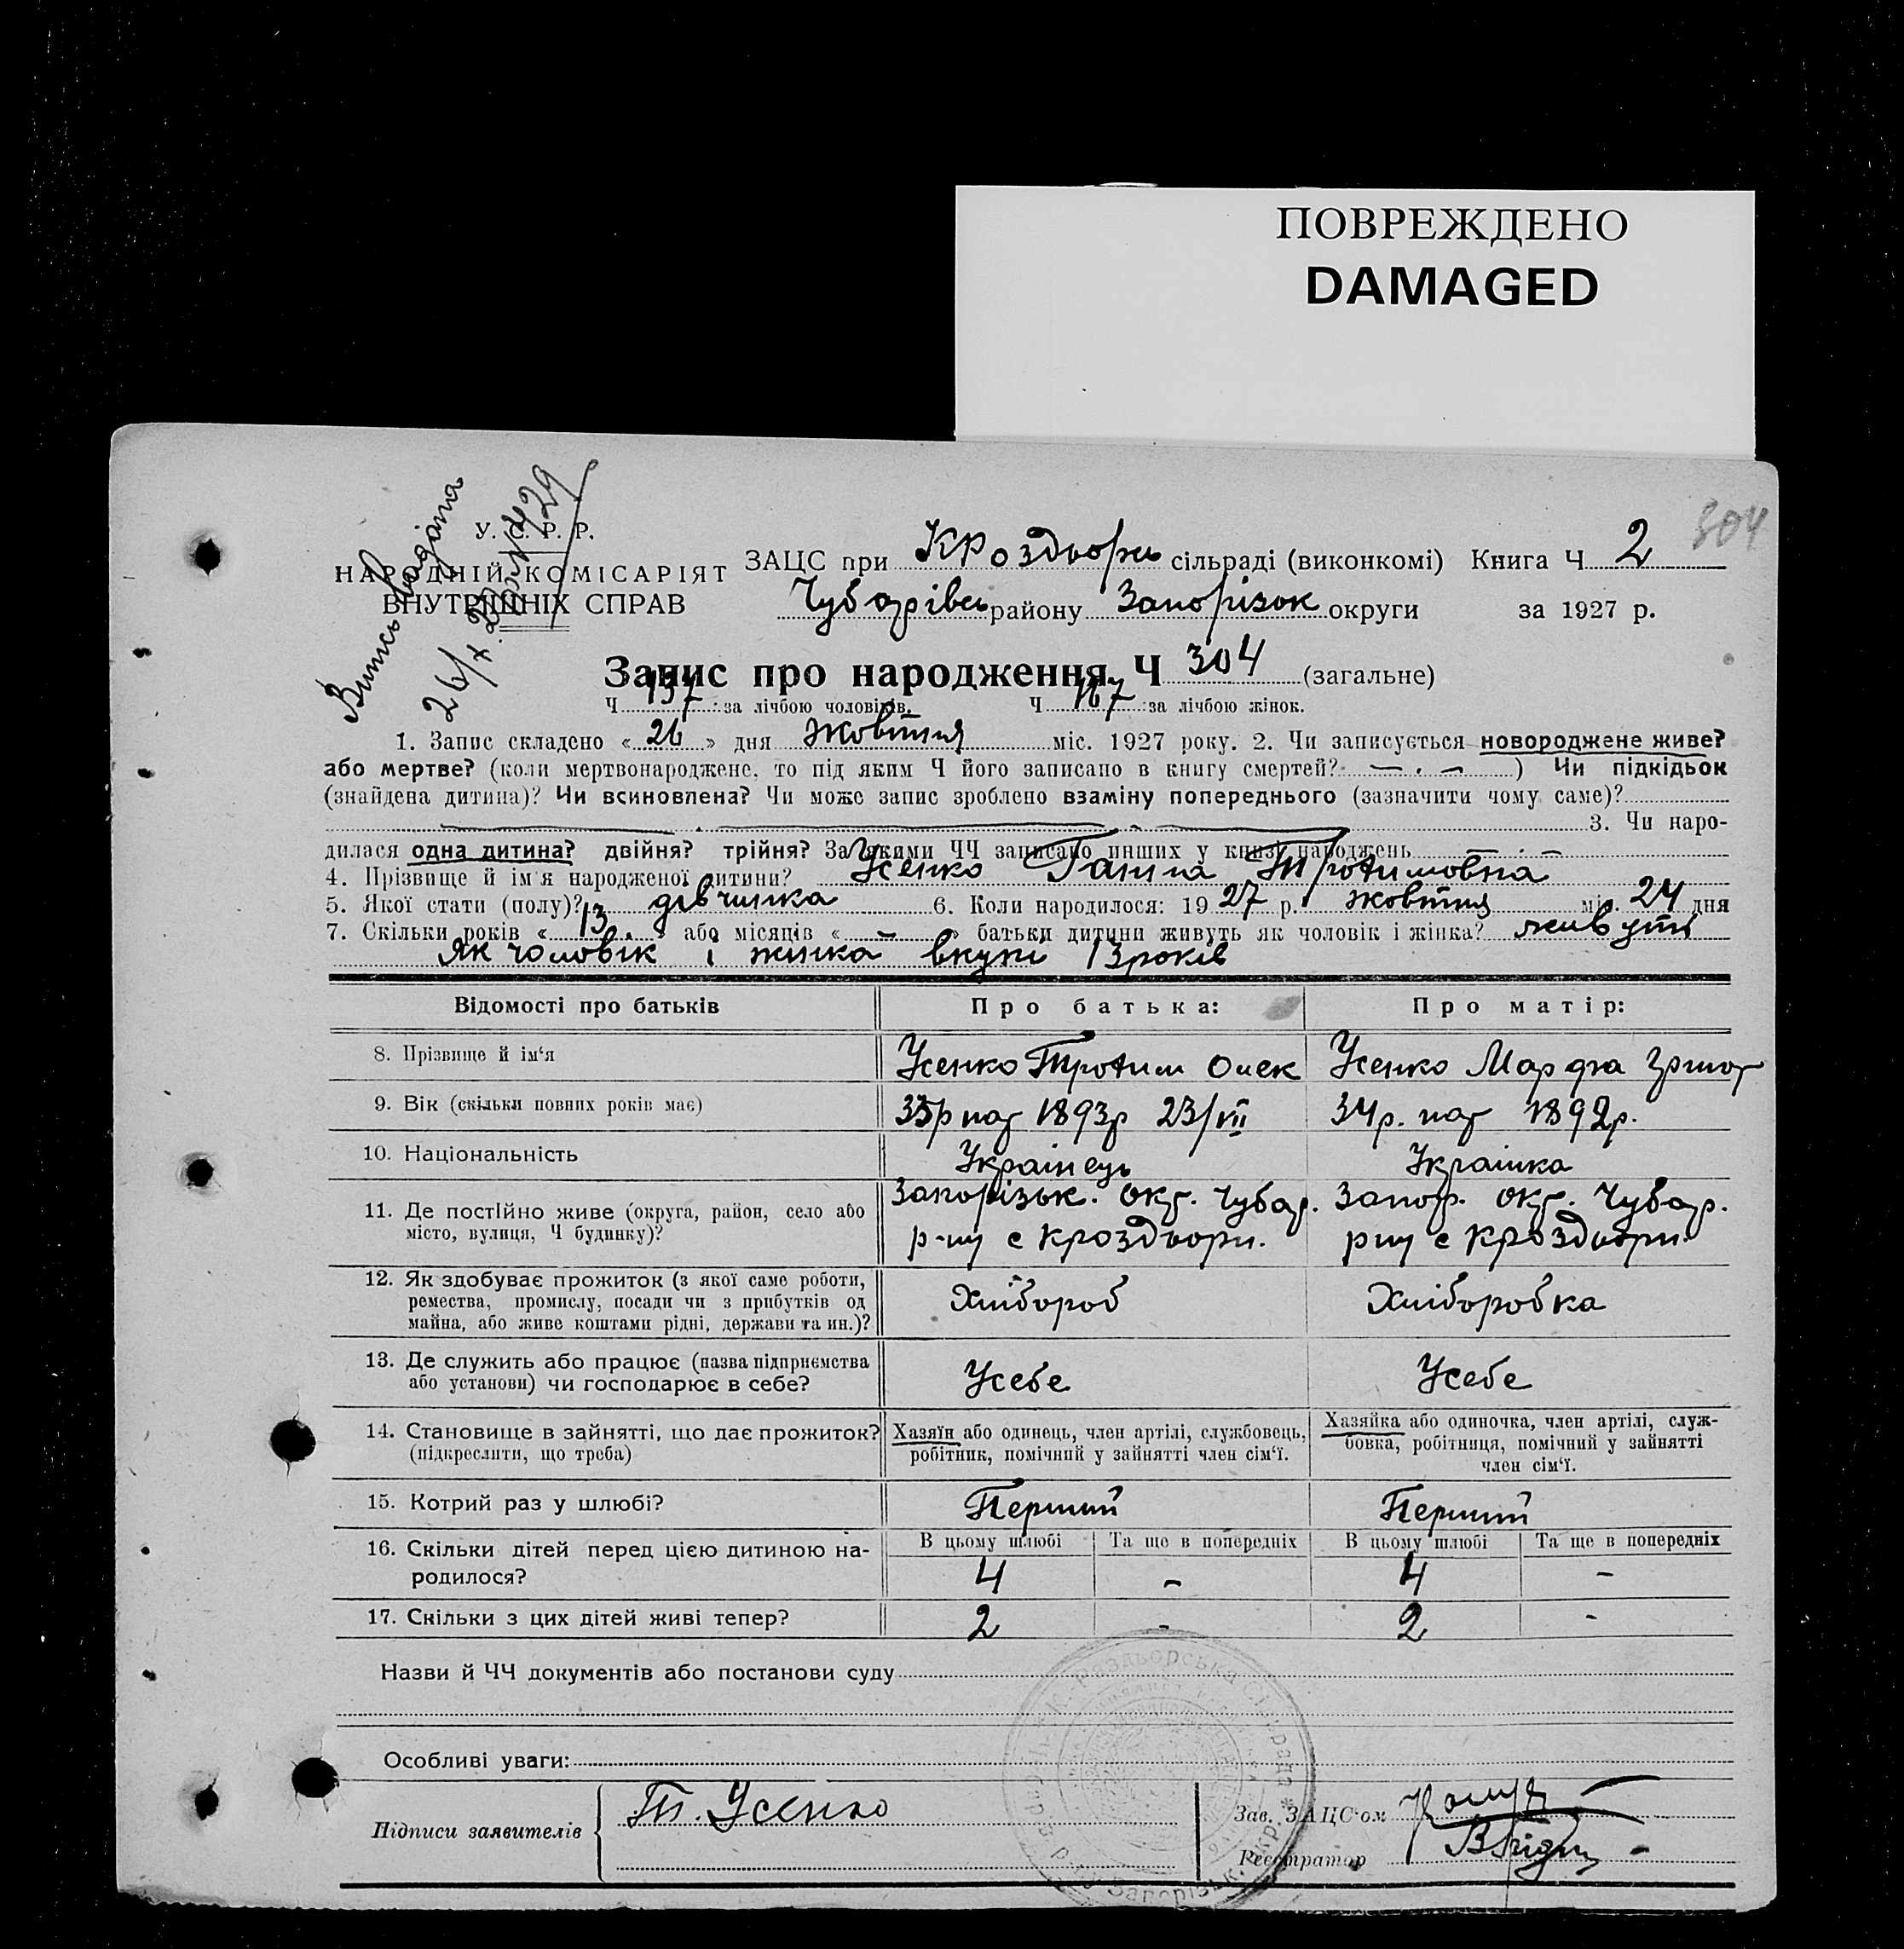 ПОВРЕЖДЕНО
DAMAGED
304
Випись видана
26/X. 27 429
У. С. Р. Р.
НАРОДНІЙ КОМІСАРІЯТ
ВНУТРІШНІХ СПРАВ
ЗАЦС при К Роздворсь сільраді (виконкомі) Книга Ч 2
Чубарівсь району Запорізок округи за 1927 р.
Запис про народження Ч 304 (загальне)
Ч 137 за лічбою чоловіків. Ч 167 за лічбою жінок.
1. Запис складено « 26 » дня Жовтня міс. 1927 року. 2. Чи записується новороджене живе?
або мертве? (коли мертвонароджене, то під яким Ч його записано в книгу смертей? — . — ) Чи підкідьок
(знайдена дитина)? Чи всиновлена? Чи може запис зроблено взаміну попереднього (зазначити чому саме)?
3. Чи наро-
дилася одна дитина? двійня? трійня? За якими ЧЧ записано инших у книзі народжень
4. Прізвище й ім'я народженої дитини? Усенко Ганна Трохимовна
5. Якої стати (полу)? дівчинка 6. Коли народилося: 19 27 р. жовтня міс. 24 дня
7. Скільки років « 13 » або місяців « – » батьки дитини живуть як чоловік і жінка? живуть
Як чоловік і жинка вкупі 13 років
Відомості про батьків Про батька: Про матір:
8. Прізвище й ім‘я Усенко Трохим Олек Усенко Марфа Григор
9. Вік (скільки повних років має) 33р нар 1893р 23/VII 34р. нар 1892р.
10. Національність Українець Украінка
11. Де постійно живе (округа, район, село або Запорізьк. окр. Чубар. Запор. окр. Чубар.
місто, вулиця, Ч будинку)? р-ну с Кроздвори. р ну с Кроздвори
12. Як здобуває прожиток (з якої саме роботи,
ремества, промислу, посади чи з прибутків од Хлібороб Хлібо­робка
майна, або живе коштами рідні, держави та ин.)?
13. Де служить або працює (назва підприємства
або установи) чи господарює в себе? Усебе Усебе
14. Становище в зайнятті, що дає прожиток? Хазяїн або одинець, член артілі, службовець, Хазяйка або одиночка, член артілі, служ-
(підкреслити, що треба) робітник, помічний у зайнятті член сім‘ї. бовка, робітниця, помічний у зайнятті
член сім‘ї.
15. Котрий раз у шлюбі? Перший Перший
16. Скільки дітей перед цією дитиною на- В цьому шлюбі Та ще в попередніх В цьому шлюбі Та ще в попередніх
родилося? 4 – 4 –
17. Скільки з цих дітей живі тепер? 2 - 2 -
Назви й ЧЧ документів або постанови суду
Особливі уваги:
Підписи заявителів Т. Усенко
Зав. ЗАЦС‘ом
Реєстратор